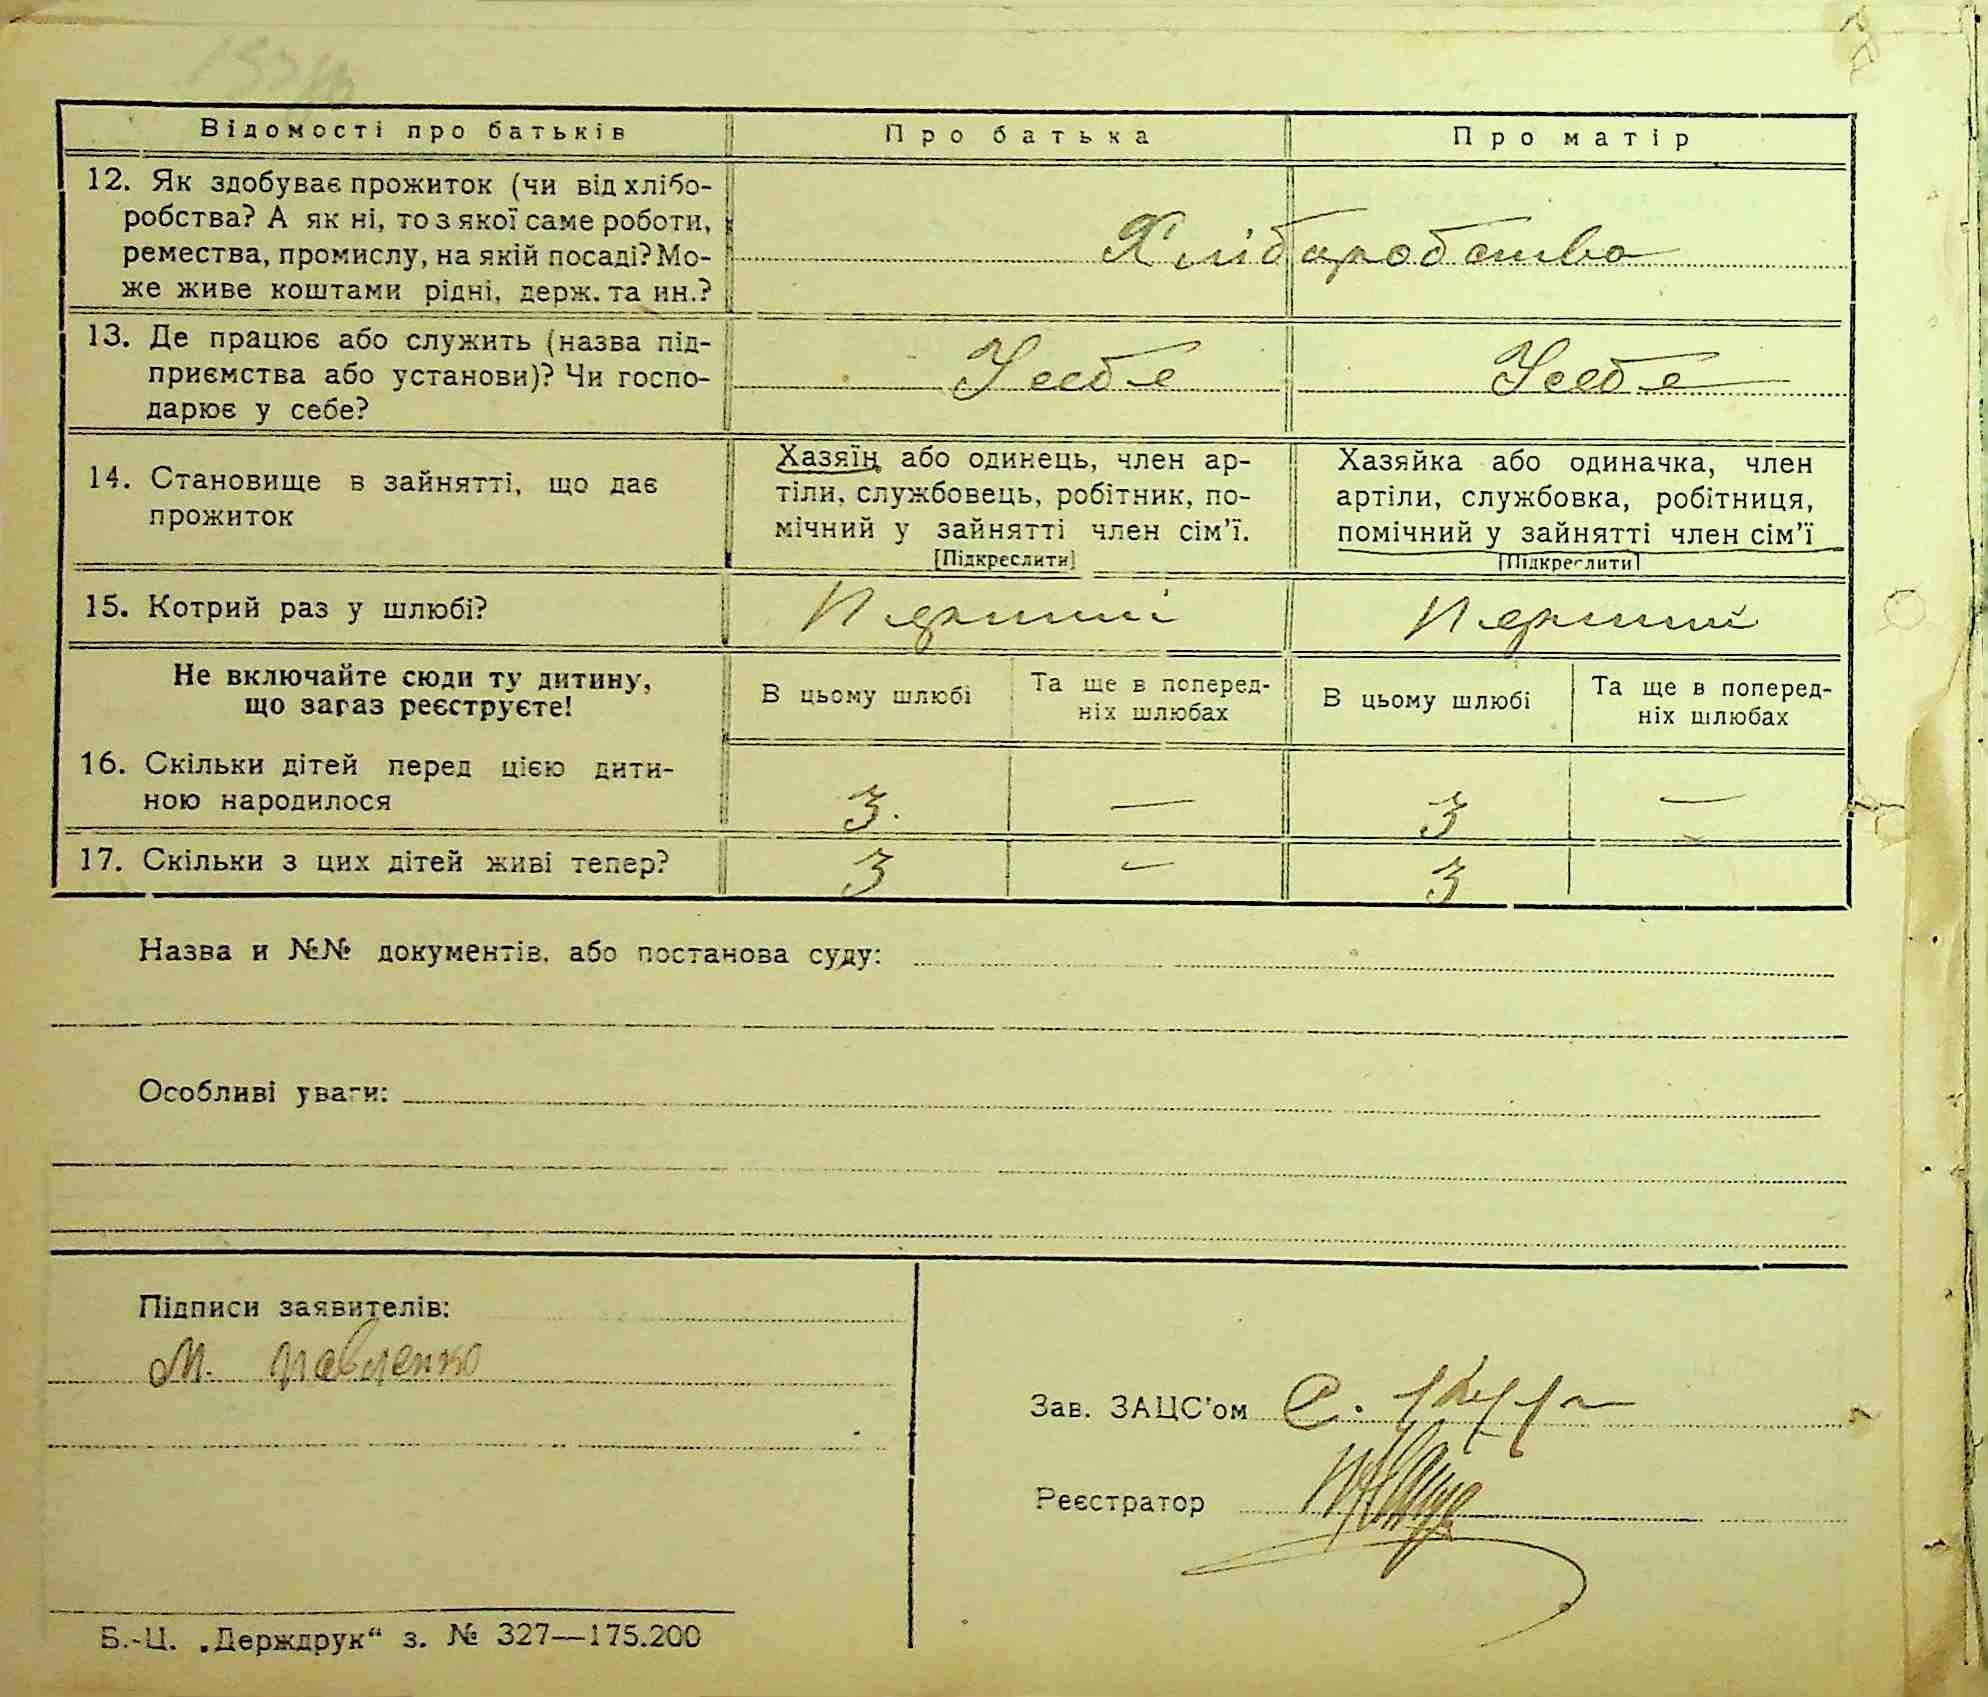 Відомості про батьків Про батька Про матір
12. Як здобуває прожиток (чи від хлібо-
робства? А як ні, то з якої саме роботи,
ремества, промислу, на якій посаді? Мо-
же живе коштами рідні, держ. та ин.?
Хліборобство
13. Де працює або служить (назва під-
приємства або установи)? Чи госпо-
дарює у себе?
У себе У себе
14. Становище в зайнятті, що дає
прожиток
Хазяїн або одинець, член ар-
тіли, службовець, робітник, по-
мічний у зайнятті член сім’ї.
[Підкреслити]
Хазяйка або одиначка, член
артіли, службовка, робітниця,
помічний у зайнятті член сім’ї
[Підкреслити]
15. Котрий раз у шлюбі? Перший Перший
Не включайте сюди ту дитину,
що зараз реєструєте!
В цьому шлюбі
Та ще в поперед-
ніх шлюбах
В цьому шлюбі
Та ще в поперед-
ніх шлюбах
16. Скільки дітей перед цією дити-
ною народилося
3. — 3 —
17. Скільки з цих дітей живі тепер? 3 — 3
Назва и №№ документів, або постанова суду:
Особливі уваги:
Підписи заявителів:
М. Павленко
Зав. ЗАЦС’ом С.
Реєстратор
Б.-Ц. „Держдрук“ з. № 327—175.200